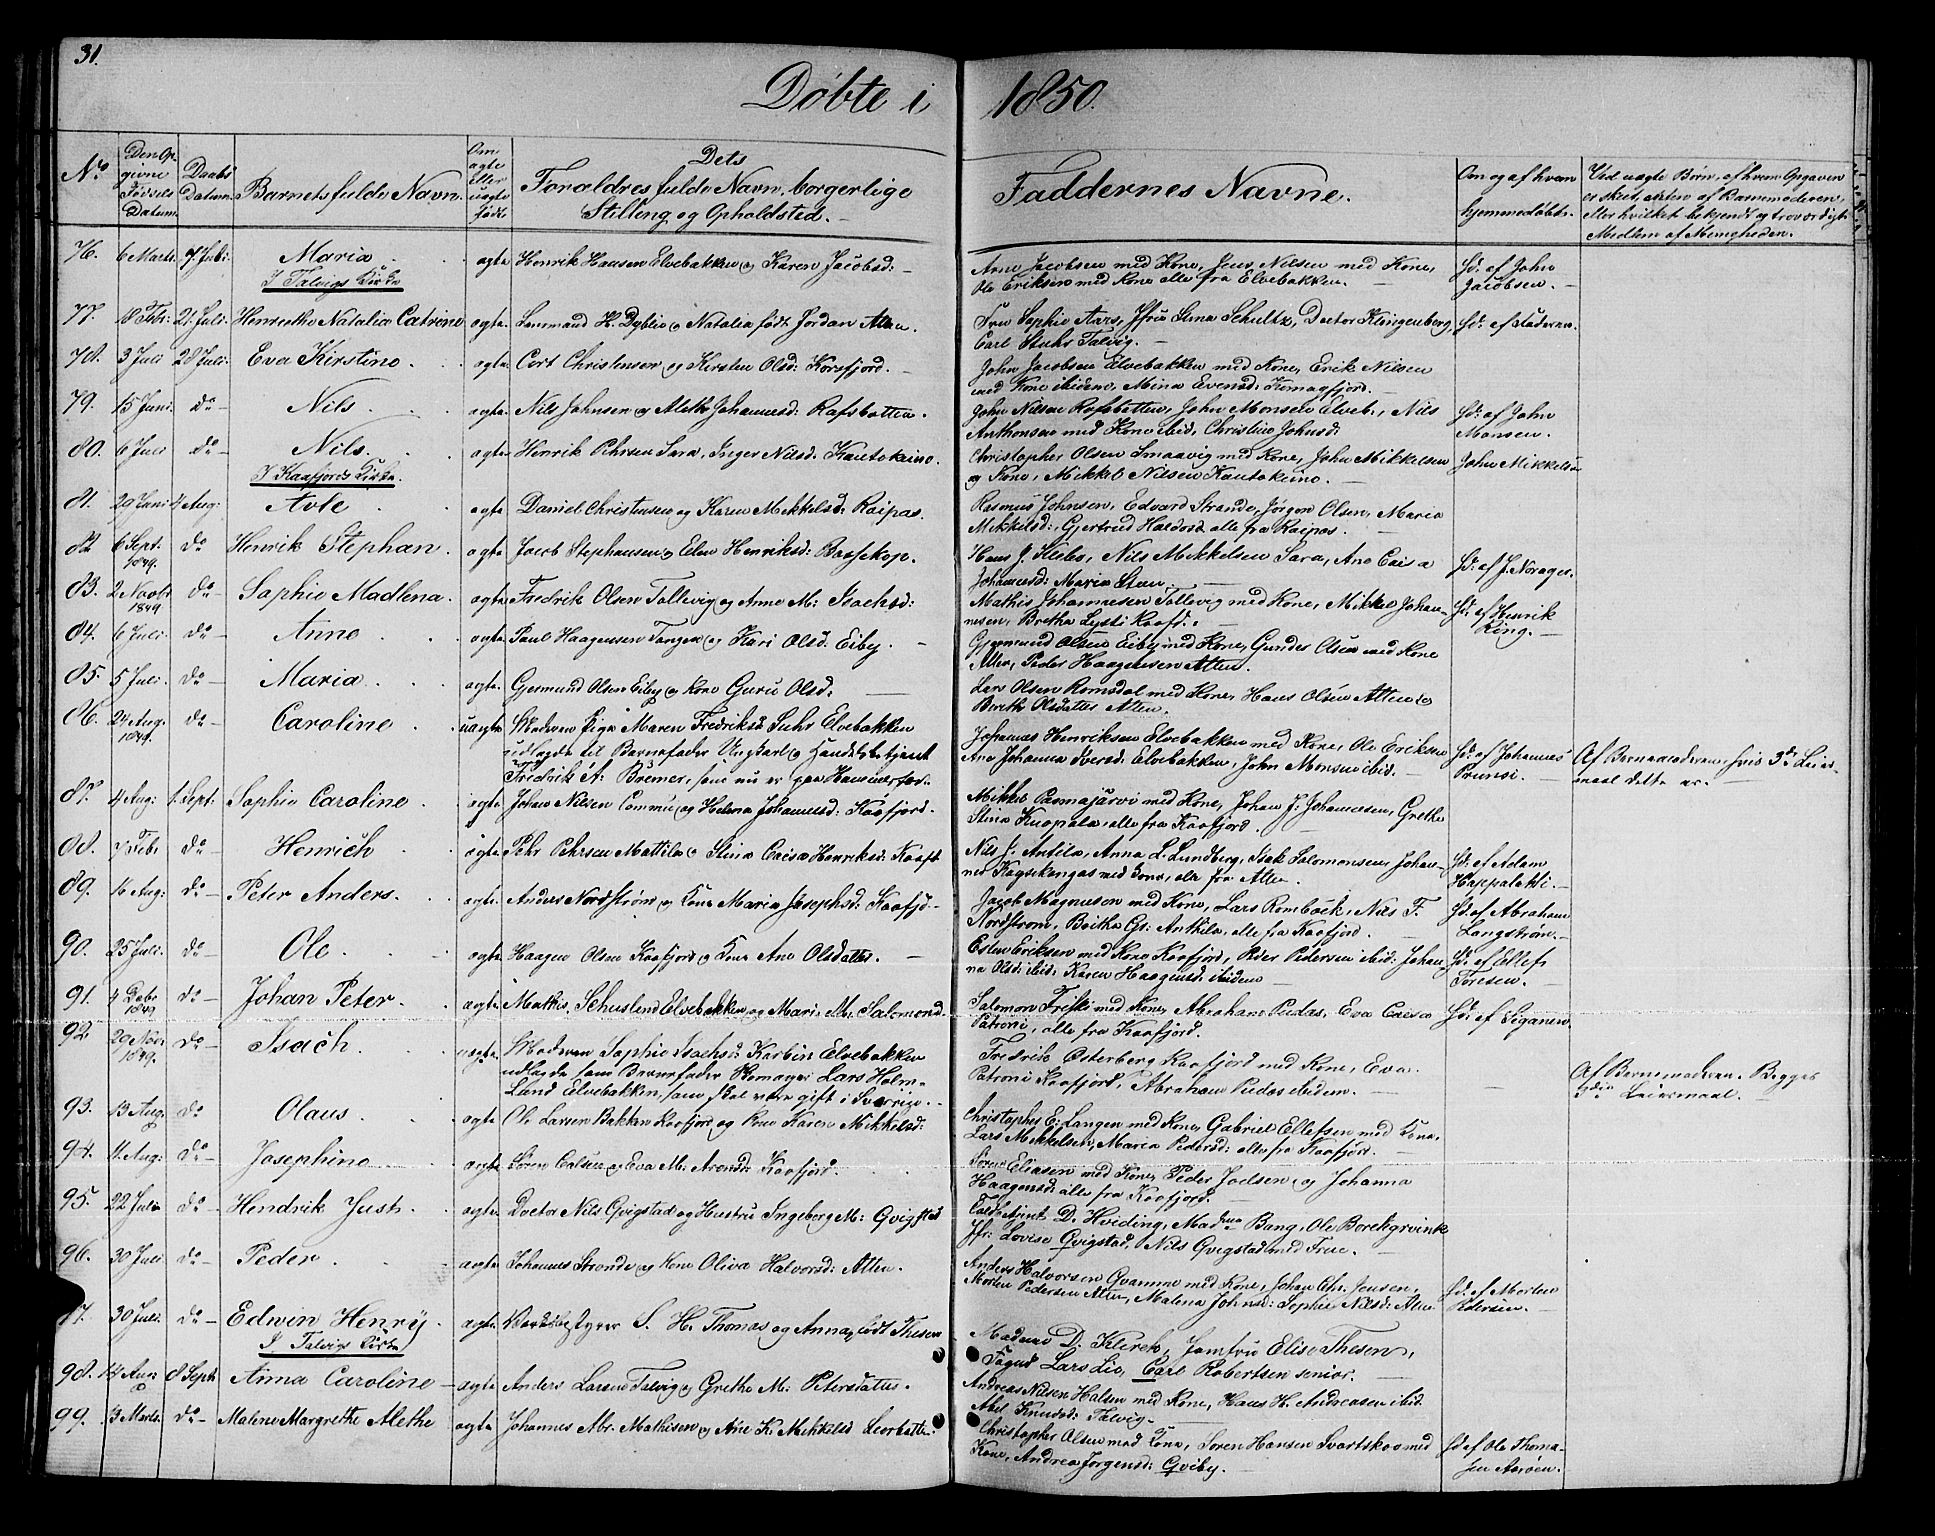 31.
Døbte i 1850.
No
Den Op-
givne
Fødsels
Datum.
Daabs
Datum.
Barnets fulde Navn.
Om
ægte
eller
uægte
født
Dets
Forældres fulde Navn, borgerlige
Stilling og Opholdsted.
Faddernes Navne.
Om og af hvem
hjemmedøbt.
Ved uægte Børn, af hvem Opgaven
er skeet, enten af Barnemoderen,
eller hvilket bekjendt og troværdigt
Medlem af Menigheden.
76. 6 Marts. 7 Juli. Maria ægte Henrik Hansen Elvebakken og Karen Jacobsd:
Arne Jacobsen med Kone, Jens Nilsen med Kone,
Ole Eriksen med Kone alle fra Elvebakken.
Hd: af John
Jacobsen.
I Talvigs Kirke
77. 18 Febr. 21 Juli. Henriette Natalia Catrine ægte Lensmand H. Dyblie og Natalia født Jordan Alten.
Fru Sophie Aars, Jfru Stina Schultz, Doctor Klingenberg,
Carl Buhs Talvig.
Hd: af Faderen.
78. 3 Juli 28 Juli. Eva Kirstine ægte Cort Christensen og Kirsten Olsd: Korsfjord.
John Jacobsen Elvebakken med Kone, Erik Nilsen
med Kone ibidem, Mina Evensd: Komagfjord.
79. 15 Juni do Nils ægte Nils Johnsen og Alethe Johannesd: Rafsbotten.
John Nilsen Rafsbotten, John Monsen Elveb:, Nils
Anthonsen med Kone ibid, Christine Johnsd:
Hd: af John
Monsen.
80. 6 Juli do Nils. ægte Henrik Pehrsen Sara, Inger Nilsd: Kautokeino.
Christopher Olsen Smaavig med Kone, John Mikkelsen
og Kone, Mikkel Nilsen Kautokeino.
John Mikkelsen
I Kaafjords Kirke.
81. 29 Juni 4 Aug: Avle ægte Daniel Christensen og Karen Mikkelsd: Raipas.
Rasmus Johnsen, Edvard Strande, Jörgen Olsen, Maria
Mikkelsd:, Gjertrud Haldosd alle fra Raipas.
82 6 Sept. 1849. do Henrik Stephan. ægte Jacob Stephansen og Elen Henriksd: Bossekop.
Hans J. Klebo, Nils Mikkelsen Sara, Ane Caisa
Johannesd: Maria Steen.
Hd: af J. Norager.
83. 2 Novbr 1849 do Sophie Madlena. ægte Fredrik Olsen Tallevig og Anne M: Isachsd:
Mathis Johannesen Tallevig med Kone, Mikkel Johan-
nesen, Bretha Lysti Kaafd.
Hd: af Henrik
Ring.
84. 6 Juli. do Anne ægte Paul Haagensen Tangen og Kari Olsd. Eiby.
Gjermund Olsen Eiby med Kone, Gunder Olsen med Kone
Alten, Peder Haagensen Alten.
85. 5 Juli. do Maria ægte Gjermund Olsen Eiby og Kone Guru Olsd:
Lars Olsen Romsdal med Kone, Hans Olsen Alten og
Berith Olsdatter Alten.
86. 24 Aug. 1849. do Caroline uægte Moderen Pige Maren Fredriksd Buhs Elvebakken
udlagde til Barnefader Ungkarl og Handelsbetjent
Fredrik A. Bäemer, som nu er paa Hammerfest.
Johannes Henriksen Elvebakken med Kone, Ole Eriksen
Ane Johanna Iversd: Elvebakken, John Monsen ibid.
Hd: af Johannes
Prunsi.
Af Barnemoderen, hvis 3die Leier-
maal dette er.
87. 4 Aug: 1 Sept. Sophie Caroline ægte Johan Nilsen Commu og Helena Johannesd: Kaafjord.
Mikkel Pasmajärvi med Kone, Johan J. Johannesen, Grethe
Stina Kuopala, alle fra Kaafjord.
88. 7 Febr do Henrich ægte Pehr Pehrsen Mattila og Stina Caisa Henriksd. Kaafd
Nils J. Antila, Anna L. Lundberg, Isak Salomonsen, Johan-
nes Kaysikangas med Kone, alle fra Alten.
Hd: af Adam
Happalahti.
89. 16 Aug: do Peter Anders. ægte Anders Nordstrøm og Kone Maria Josephsd: Kaafjd.
Jacob Magnusen med Kone, Lars Rombäck, Nils F.
Nordstrøm, Beitha Gs: Anthila, alle fra Kaafjord.
Hd: af Abraham
Langstrøm.
90. 25 Juli. do Ole ægte Haagen Olsen Kaafjord og Kone Ane Olsdatter.
Esten Eriksen med Kone Kaafjord, Peder Pedersen ibid: Johan-
na Olsd: ibid: Karen Haagensd: ibidem
Hd: af Ellef
Toresen.
91. 4 Decbr 1849 do Johan Peter. ægte Mathis Schuslend Elvebakken og Mari M: Salomonsd.
Salomon Friski med Kone, Abraham Pudas, Eva Caisa
Patroni, alle fra Kaafjord.
Hd: af Siganen.
92 29 Novbr 1849. do Isach. uægte Moderen Sophie Isachsd: Karbin Elvebakken
udlagde som Barnefader Skomager Lars Holm-
Lund Elvebakken, som skal være gift i Sverige.
Fredrik Østerberg Kaafjord med Kone, Eva
Patroni Kaafjord, Abraham Pudas ibidem.
Af Barnemoderen. Begges
3die Leiermaal.
93. 13 Aug. do Olaus ægte Ole Larsen Bakken Kaafjord og Kone Karen Mikkelsd:
Christopher E: Langen med Kone, Gabriel Ellefsen med Kone,
Lars Mikkelsen, Maria Pedersd: alle fra Kaafjord.
94. 11 Aug: do Josephine ægte Søren Carlsen og Eva M: Aronsd: Kaafjord.
Søren Eliasen med Kone, Peder Joelsen og Johanna
Haagensd: alle fra Kaafjord.
95. 22 Juli do Hendrik Just. ægte Doctor Nils Qvigstad og Hustru Ingeborg M: Qvigstad
Told Asist D. Hviding, Madme Bang, Ole Borchgrevink
Jfr: Lovise Qvigstad, Nils Qvigstad med Frue.
96. 30 Juli do Peder ægte Johannes Strande og Kone Oliva Halvorsd: Alten.
Anders Halvorsen Qvamme med Kone, Johan Chr. Jensen,
Morten Pedersen Alten, Malena Johnsd: Sophie Nilsd: Alten
Hd: af Morten
Pedersen.
97. 30 Juli. do Edwin Henry ægte Værksbestyrer S. H. Thomas og Anna, født Thesen
Madame D. Klerck, Jomfru Elise Thesen,
Foged Lars Lie, Carl Robertsen senior.
I Talvigs Kirke
98. 14 Aug 8 Septb Anna Caroline ægte Anders Larsen Talvig og Grethe M: Petersdatter.
Andreas Nilsen Halsen med Kone, Hans H. Andreasen ibid.
Abel Knudsd: Talvig.
99. 3 Marts. do Malene Margrethe Alethe ægte Johannes Abr. Mathisen og Ane K. Mikkelsd Leerbotten.
Christopher Olsen med Kone, Søren Hansen Svartskog med
Kone, Andrea Jørgensd: Qviby.
Hd af Ole Thoma-
sen Aarøen.